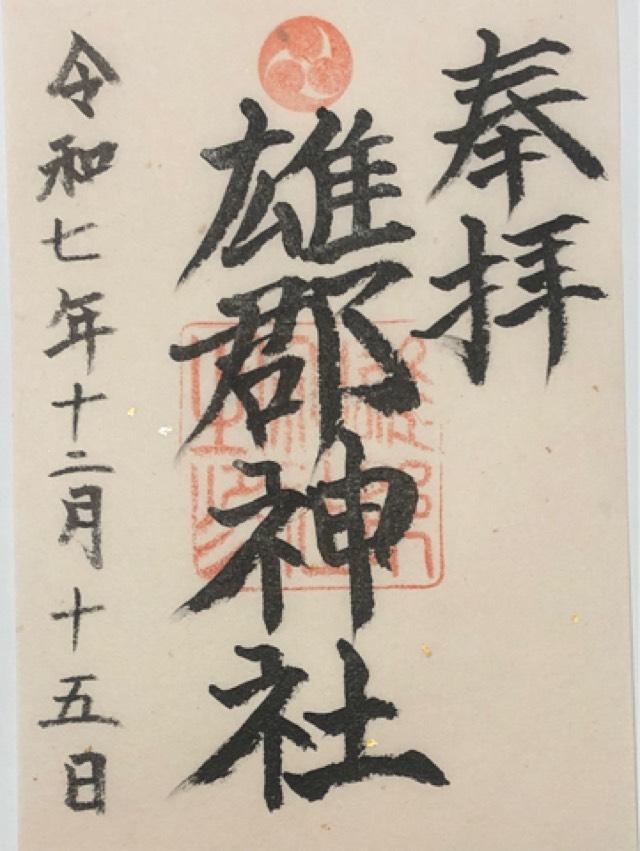 奉拝
雄郡神社
令和七年十二月十五日